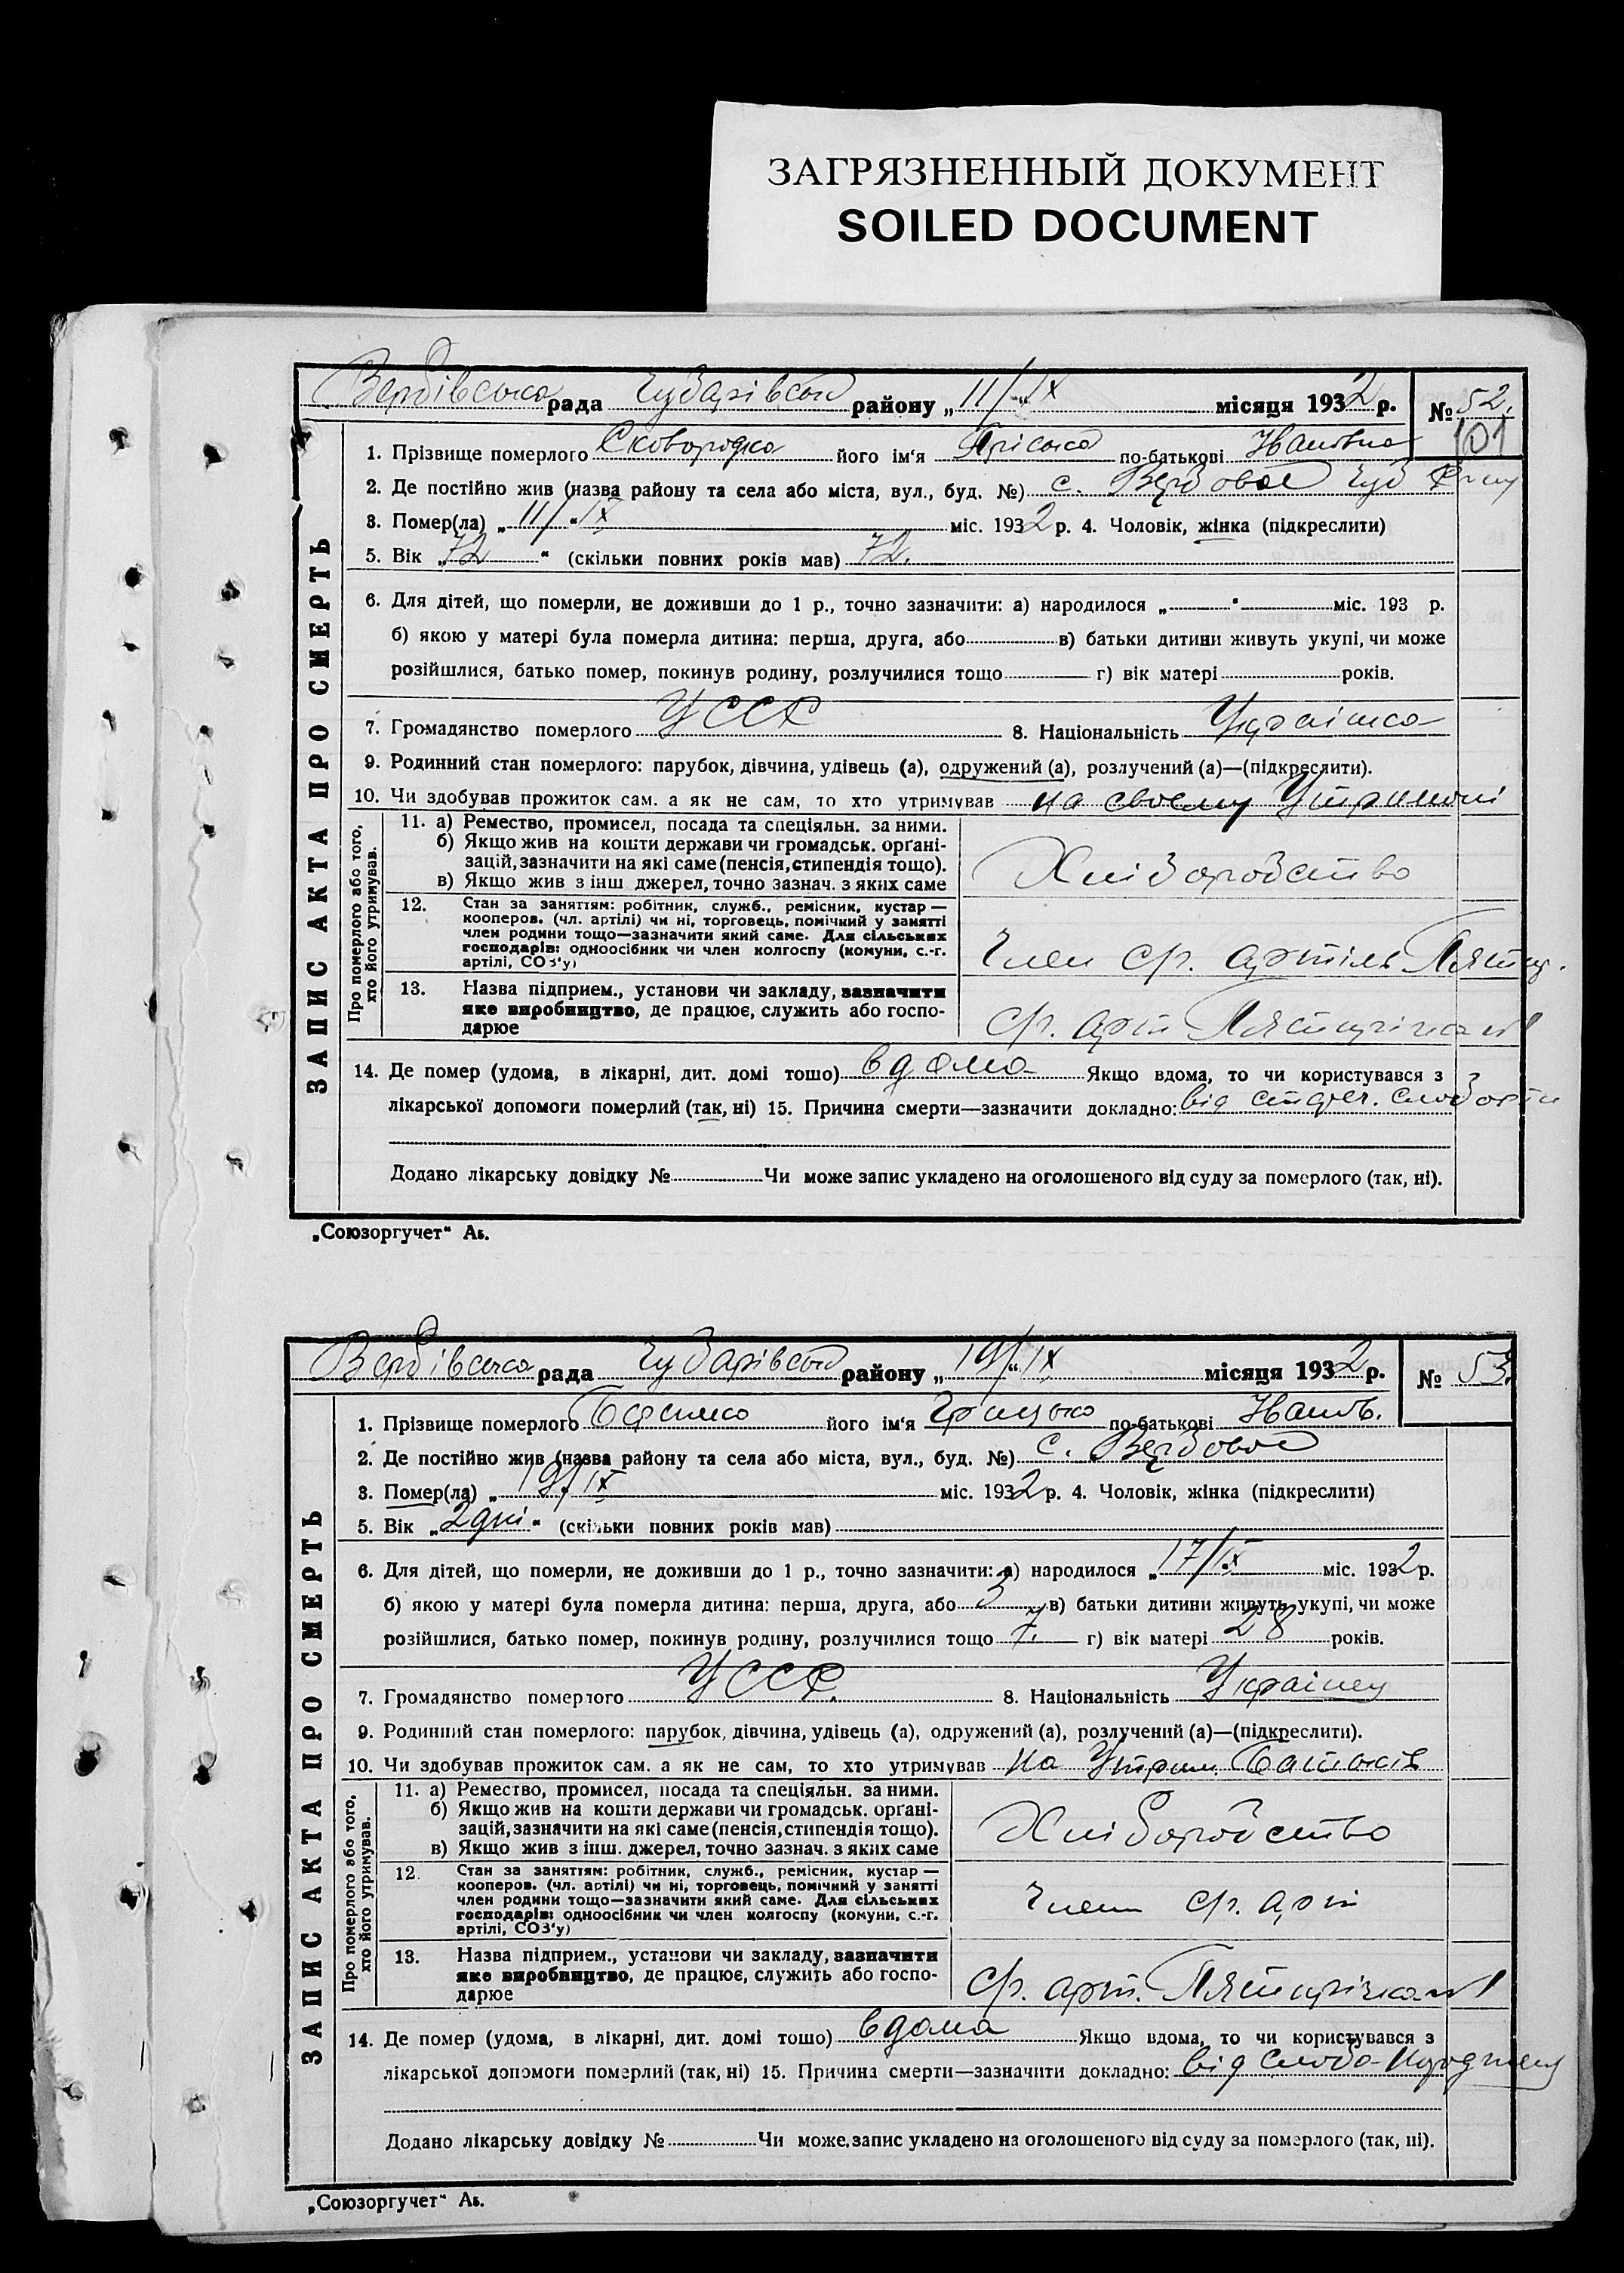 ЗАГРЯЗНЕННЫЙ ДОКУМЕНТ
SOILED DOCUMENT
Вербівська рада Чубарівськ району „11/“ IX місяця 1932 р. № 52.
101
ЗАПИС АКТА ПРО СМЕРТЬ
1. Прізвище померлого Сковородка його ім'я Пріська по-батькові Івановна
2. Де постійно жив (назва району та села або міста, вул., буд. №) с. Вербовое Чуб
3. Помер(ла) „11/“ IX міс. 1932 р. 4. Чоловік, жінка (підкреслити)
5. Вік „72“ (скільки повних років мав) 72.
6. Для дітей, що померли, не доживши до 1 р., точно зазначити: а) народилося „ “ міс. 193 р.
б) якою у матері була померла дитина: перша, друга, або в) батьки дитини живуть укупі, чи може
розійшлися, батько помер, покинув родину, розлучилися тощо г) вік матері років.
7. Громадянство померлого УССР 8. Національність Українка
9. Родинний стан померлого: парубок, дівчина, удівець (а), одружений (а), розлучений (а)—(підкреслити).
10. Чи здобував прожиток сам. а як не сам, то хто утримував на своєму утриманні
Про померлого або того, хто його утримував.
11. а) Ремество, промисел, посада та спеціяльн. за ними.
б) Якщо жив на кошти держави чи громадськ. орґані-
зацій, зазначити на які саме (пенсія, стипендія тощо).
в) Якщо жив з інш джерел, точно зазнач. з яких саме
Хліборобство
12. Стан за заняттям: робітник, служб., ремісник, кустар —
кооперов. (чл. артілі) чи ні, торговець, помічний у занятті
член родини тощо—зазначити який саме. Для сільських
господарів: одноосібник чи член колгоспу (комуни, с.-г.
артілі, СОЗ'у)
Член с/г. артіль Пятир.
13. Назва підприєм., установи чи закладу, зазначити
яке виробництво, де працює, служить або госпо-
дарює
с/г. арт Пятирічка №1
14. Де помер (удома, в лікарні, дит. домі тощо) вдома Якщо вдома, то чи користувався з
лікарської допомоги померлий (так, ні) 15. Причина смерти—зазначити докладно: від стареч. слабости
Додано лікарську довідку № Чи може запис укладено на оголошеного від суду за померлого (так, ні).
„Союзоргучет“ А₅.
Вербівська рада Чубарівськ району „19/“ IX місяця 1932 р. № 53.
ЗАПИС АКТА ПРО СМЕРТЬ
1. Прізвище померлого його ім'я Грицько по-батькові Іванов.
2. Де постійно жив (назва району та села або міста, вул., буд. №) с. Вербовое
3. Помер(ла) „19/ IX міс. 1932 р. 4. Чоловік, жінка (підкреслити)
5. Вік „2 дні“ (скільки повних років мав)
6. Для дітей, що померли, не доживши до 1 р., точно зазначити: а) народилося „17/IX міс. 1932 р.
б) якою у матері була померла дитина: перша, друга, або 3 в) батьки дитини живуть укупі, чи може
розійшлися, батько помер, покинув родину, розлучилися тощо 7. г) вік матері 28 років.
7. Громадянство померлого УССР. 8. Національність Українец
9. Родинний стан померлого: парубок, дівчина, удівець (а), одружений (а), розлучений (а)—(підкреслити).
10. Чи здобував прожиток сам. а як не сам, то хто утримував на утрим. батьків
Про померлого або того, хто його утримував.
11. а) Ремество, промисел, посада та спеціяльн. за ними.
б) Якщо жив на кошти держави чи громадськ. орґані-
зацій, зазначити на які саме (пенсія, стипендія тощо).
в) Якщо жив з інш. джерел, точно зазнач. з яких саме
Хліборобство
12. Стан за заняттям: робітник, служб., ремісник, кустар —
кооперов. (чл. артілі) чи ні, торговець, помічний у занятті
член родини тощо—зазначити який саме. Для сільських
господарів: одноосібник чи член колгоспу (комуни, с.-г.
артілі, СОЗ'у)
Член с/г. арт
13. Назва підприєм., установи чи закладу, зазначити
яке виробництво, де працює, служить або госпо-
дарює
с/г. арт. Пятирічка №1
14. Де помер (удома, в лікарні, дит. домі тощо) вдома Якщо вдома, то чи користувався з
лікарської допомоги померлий (так, ні) 15. Причина смерти—зазначити докладно: від слабо-
Додано лікарську довідку № Чи може запис укладено на оголошеного від суду за померлого (так, ні).
„Союзоргучет“ А₅.